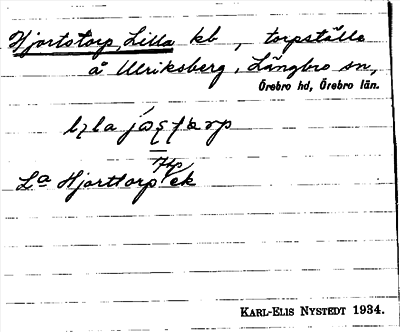 Hjortstorp, Lilla kb , torpställe
å Ulriksberg, Längbro sn,
Örebro hd, Örebro län.
La Hjorttorp ek
KARL-ELIS NYSTEDT 1934.